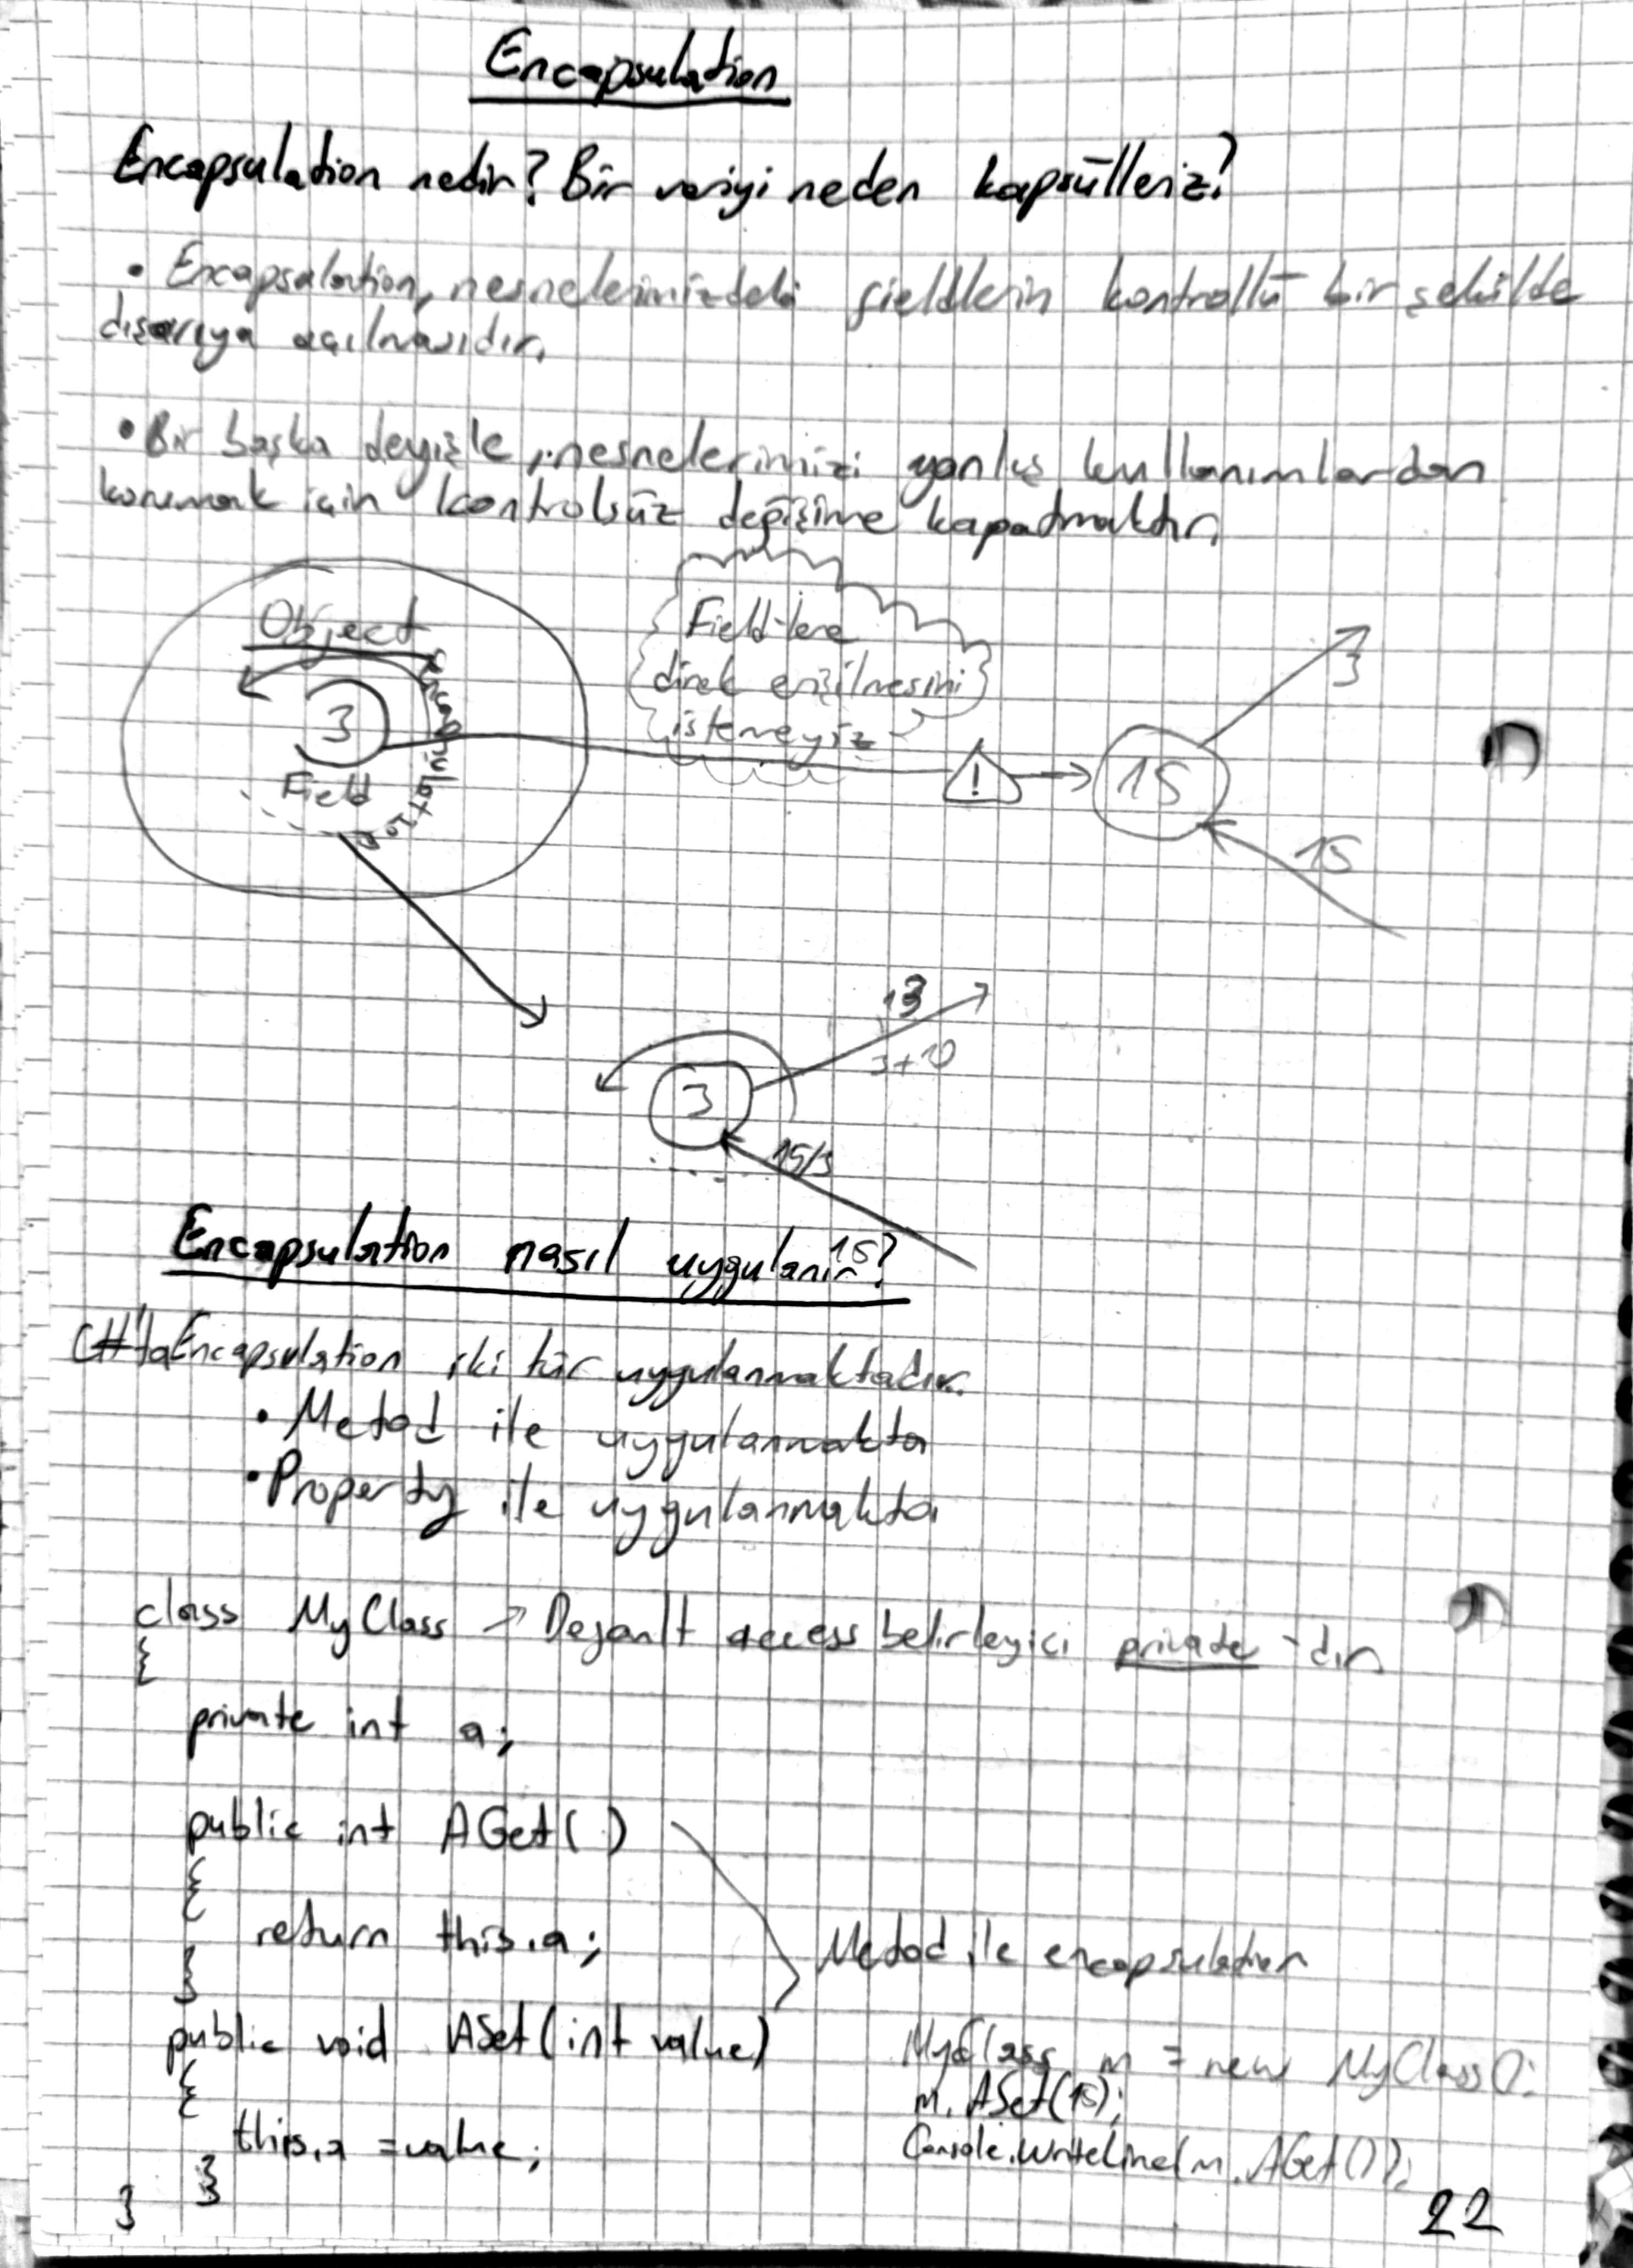 Encapsulation
Encapsulation nedir? Bir veriyi neden kapsülleriz?
• Encapsulation, nesnelerimizdeki fieldlerin kontrollü bir şekilde
dışarıya açılmasıdır.
• Bir başka deyişle, nesnelerimizi yanlış kullanımlardan
korumak için kontrolsüz değişime kapatmaktır.
Object
3
Field
Encapsulation
Field-lere
direk erişilmesini
istemeyiz
!
15
3
15
13
3+10
3
15/3
15
Encapsulation nasıl uygulanır?
C#'ta Encapsulation iki tür uygulanmaktadır.
• Metod ile uygulanmakta
• Property ile uygulanmakta
class MyClass → Default access belirleyici private-dır
{
private int a;
public int AGet()
{
return this.a;
}
Metod ile encapsulation
public void ASet(int value)
{
this.a = value;
}
}
MyClass m = new MyClass();
m.ASet(15);
Console.WriteLine(m.AGet());
22